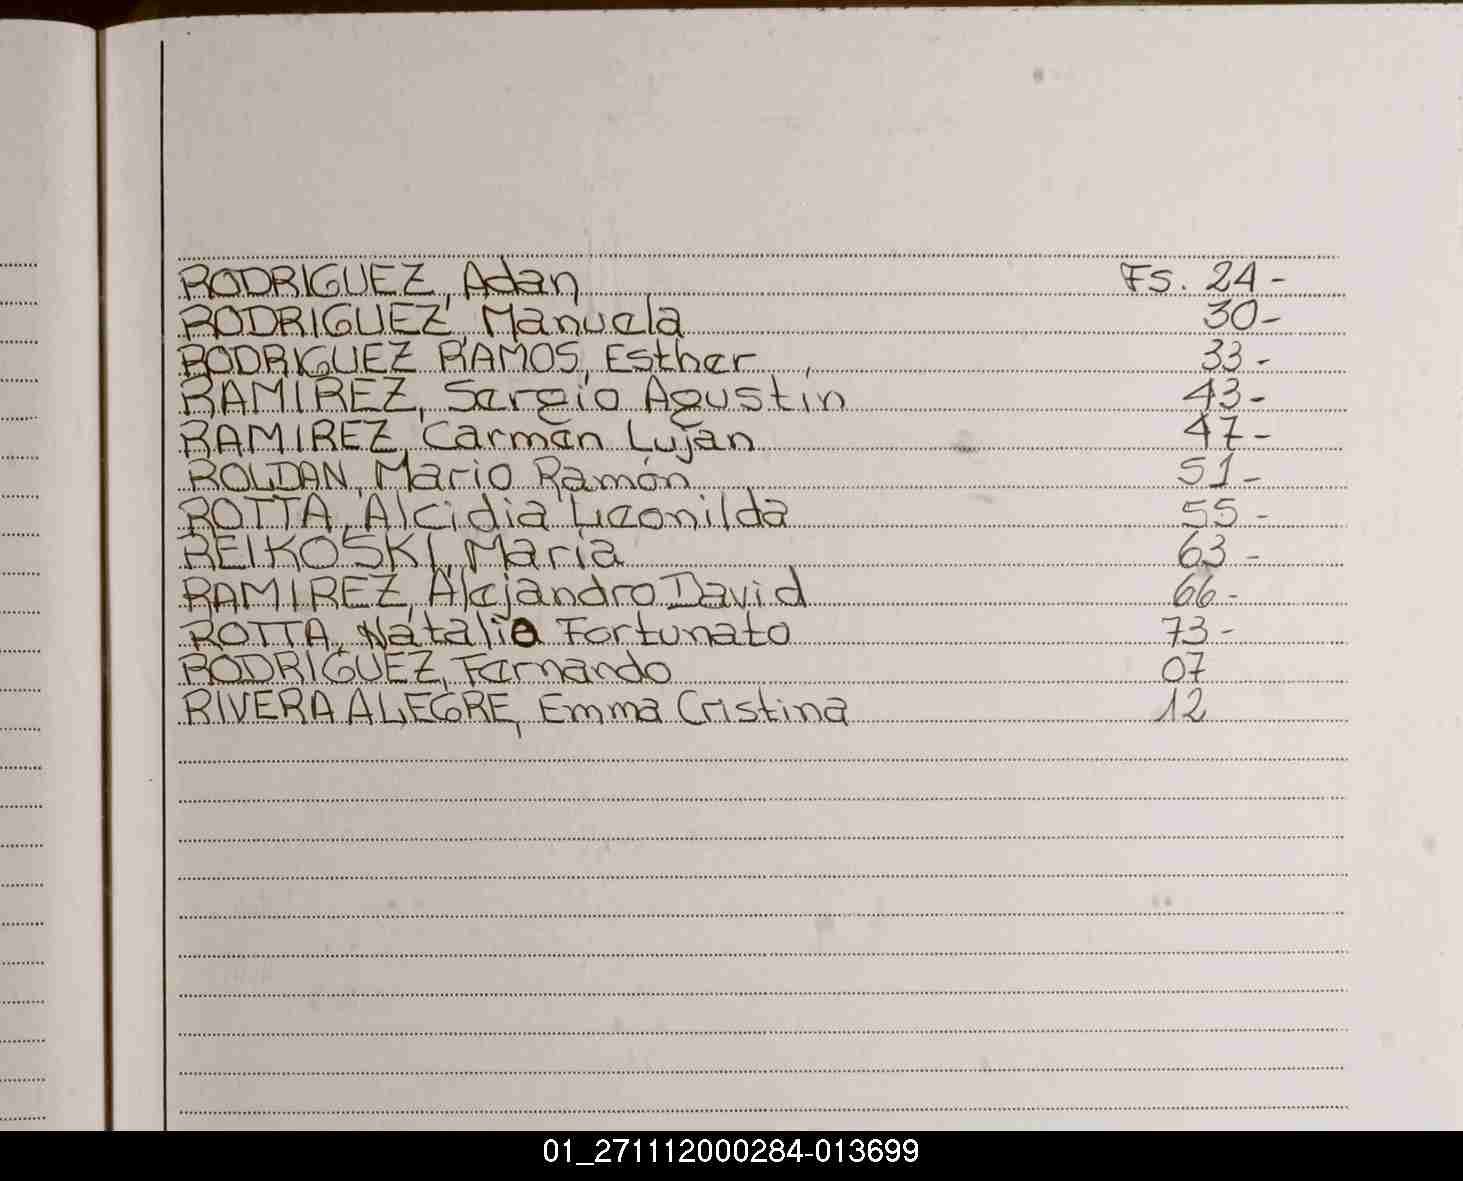 RODRIGUEZ, Adan Fs. 24-
RODRIGUEZ, Manuela 30-
RODRIGUEZ RAMOS, Esther 33-
RAMIREZ, Sergio Agustín 43-
RAMIREZ, Carmen Luján 47-
ROLDAN, Mario Ramón 51-
ROTTA, Alcidia Leonilda 55-
REIKOSKI, María 63-
RAMIREZ, Alejandro David 66-
ROTTA, Natalio Fortunato 73-
RODRIGUEZ, Fernando 07
RIVERA ALEGRE, Emma Cristina 12
01_271112000284-013699